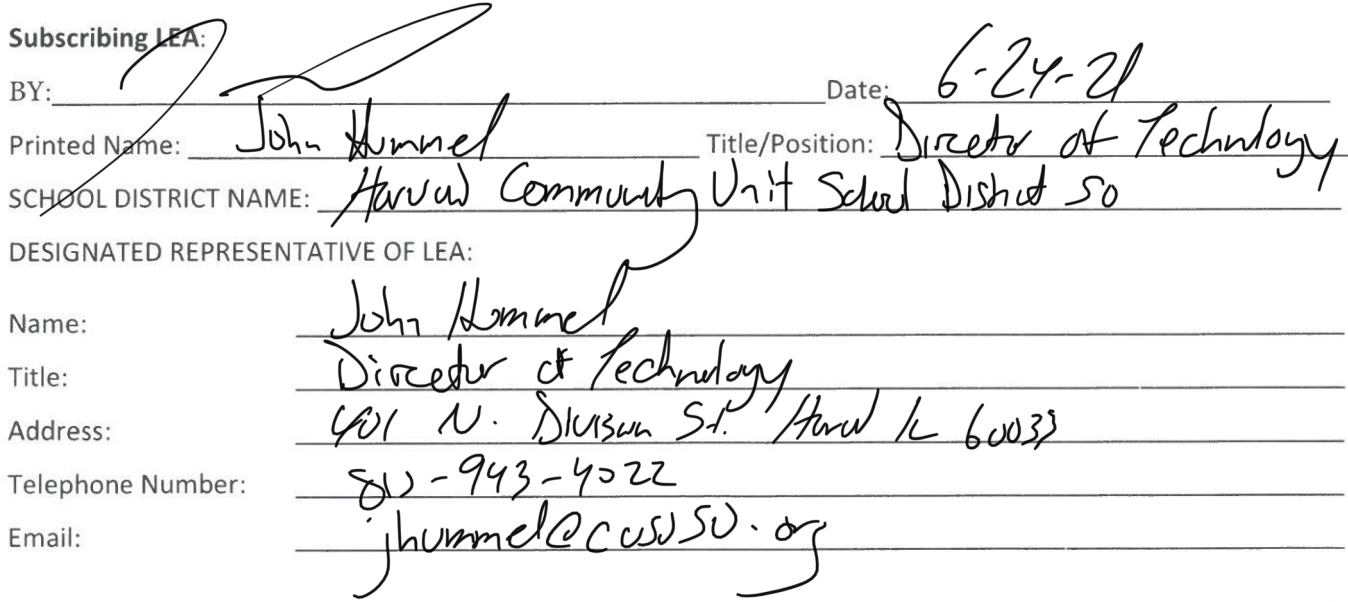 Subscribing LEA:
BY: Date: 6-24-21
Printed Name: John Hummel Title/Position: Director of Technology
SCHOOL DISTRICT NAME: Harvard Community Unit School District 50
DESIGNATED REPRESENTATIVE OF LEA:
Name: John Hummel
Title: Director of Technology
Address: 401 N. Division St. Harvard IL 60033
Telephone Number: 815-943-4022
Email: jhummel@cusd50.org